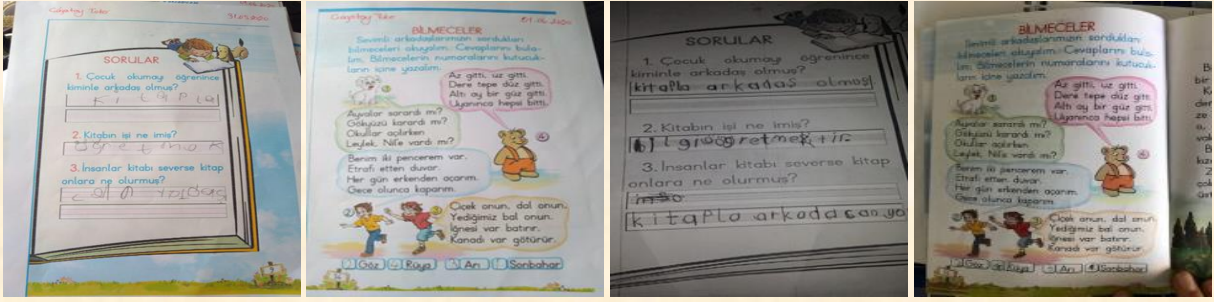 31.05.2020
SORULAR
1. Çocuk okumayı öğrenince
kiminle arkadaş olmuş?
kitapla
2. Kitabın işi ne imiş?
öğretmek
3. İnsanlar kitabı severse kitap
onlara ne olurmuş?
01.06.2020
BİLMECELER
Sevimli arkadaşlarımızın sordukları
bilmeceleri okuyalım. Cevaplarını bula-
lım. Bilmecelerin numaralarını kutucuk-
ların içine yazalım.
Az gitti, uz gitti.
Dere tepe düz gitti.
Altı ay bir güz gitti.
Uyanınca hepsi bitti.
Ayvalar sarardı mı?
Gökyüzü karardı mı?
Okullar açılırken
Leylek, Nil'e vardı mı?
Benim iki pencerem var.
Etrafı etten duvar.
Her gün erkenden açarım.
Gece olunca kaparım.
Çiçek onun, dal onun.
Yediğimiz bal onun.
İğnesi var batırır.
Kanadı var götürür.
Göz 4 Rüya Arı Sonbahar
SORULAR
1. Çocuk okumayı öğrenince
kiminle arkadaş olmuş?
kitapla arkadaş olmuş
2. Kitabın işi ne imiş?
öğretmektir
3. İnsanlar kitabı severse kitap
onlara ne olurmuş?
kitapla
BİLMECELER
Sevimli arkadaşlarımızın sordukları
bilmeceleri okuyalım. Cevaplarını bula-
lım. Bilmecelerin numaralarını kutucuk-
ların içine yazalım.
Az gitti, uz gitti.
Dere tepe düz gitti.
Altı ay bir güz gitti.
Uyanınca hepsi bitti.
Ayvalar sarardı mı?
Gökyüzü karardı mı?
Okullar açılırken
Leylek, Nil'e vardı mı?
Benim iki pencerem var.
Etrafı etten duvar.
Her gün erkenden açarım.
Gece olunca kaparım.
Çiçek onun, dal onun.
Yediğimiz bal onun.
İğnesi var batırır.
Kanadı var götürür.
Göz Rüya Arı Sonbahar